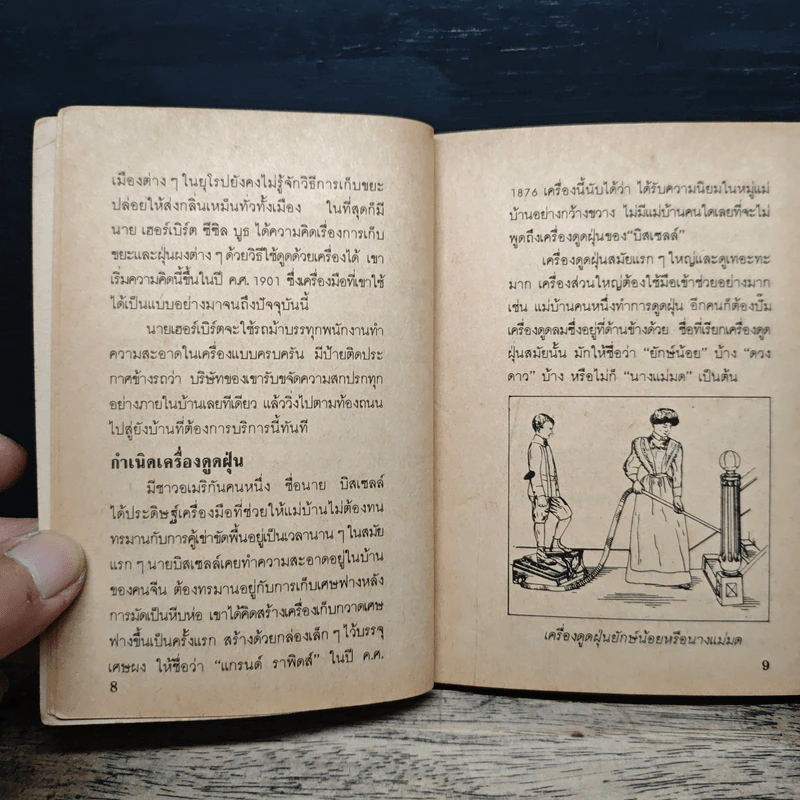 เมืองต่าง ๆ ในยุโรปยังคงไม่รู้จักวิธีการเก็บขยะ
ปล่อยให้ส่งกลิ่นเหม็นทั่วทั้งเมือง ในที่สุดก็มี
นาย เฮอร์เบิร์ต ซีซิล บูธ ได้ความคิดเรื่องการเก็บ
ขยะและฝุ่นผงต่าง ๆ ด้วยวิธีใช้ดูดด้วยเครื่องได้ เขา
เริ่มความคิดนี้ขึ้นในปี ค.ศ. 1901 ซึ่งเครื่องมือที่เขาใช้
ได้เป็นแบบอย่างมาจนถึงปัจจุบันนี้
นายเฮอร์เบิร์ตจะใช้รถม้าบรรทุกพนักงานทำ
ความสะอาดในเครื่องแบบครบครัน มีป้ายติดประ
กาศข้างรถว่า บริษัทของเขารับขจัดความสกปรกทุก
อย่างภายในบ้านเลยทีเดียว แล้ววิ่งไปตามท้องถนน
ไปสู่ยังบ้านที่ต้องการบริการนี้ทันที
กำเนิดเครื่องดูดฝุ่น
มีชาวอเมริกันคนหนึ่ง ชื่อนาย บิสเซลล์
ได้ประดิษฐ์เครื่องมือที่ช่วยให้แม่บ้านไม่ต้องทน
ทรมานกับการคู้เข่าขัดพื้นอยู่เป็นเวลานาน ๆ ในสมัย
แรก ๆ นายบิสเซลล์เคยทำความสะอาดอยู่ในบ้าน
ของคนจีน ต้องทรมานอยู่กับการเก็บเศษฟางหลัง
การมัดเป็นหีบห่อ เขาได้คิดสร้างเครื่องเก็บกวาดเศษ
ฟางขึ้นเป็นครั้งแรก สร้างด้วยกล่องเล็ก ๆ ไว้บรรจุ
เศษผง ให้ชื่อว่า “แกรนด์ ราพิดส์” ในปี ค.ศ.
8
1876 เครื่องนี้นับได้ว่า ได้รับความนิยมในหมู่แม่
บ้านอย่างกว้างขวาง ไม่มีแม่บ้านคนใดเลยที่จะไม่
พูดถึงเครื่องดูดฝุ่นของ“บิสเซลล์”
เครื่องดูดฝุ่นสมัยแรก ๆ ใหญ่และดูเทอะทะ
มาก เครื่องส่วนใหญ่ต้องใช้มือเข้าช่วยอย่างมาก
เช่น แม่บ้านคนหนึ่งทำการดูดฝุ่น อีกคนก็ต้องปั๊ม
เครื่องดูดลมซึ่งอยู่ที่ด้านข้างด้วย ชื่อที่เรียกเครื่องดูด
ฝุ่นสมัยนั้น มักให้ชื่อว่า “ยักษ์น้อย” บ้าง “ดวง
ดาว” บ้าง หรือไม่ก็ “นางแม่มด” เป็นต้น
เครื่องดูดฝุ่นยักษ์น้อยหรือนางแม่มด
9